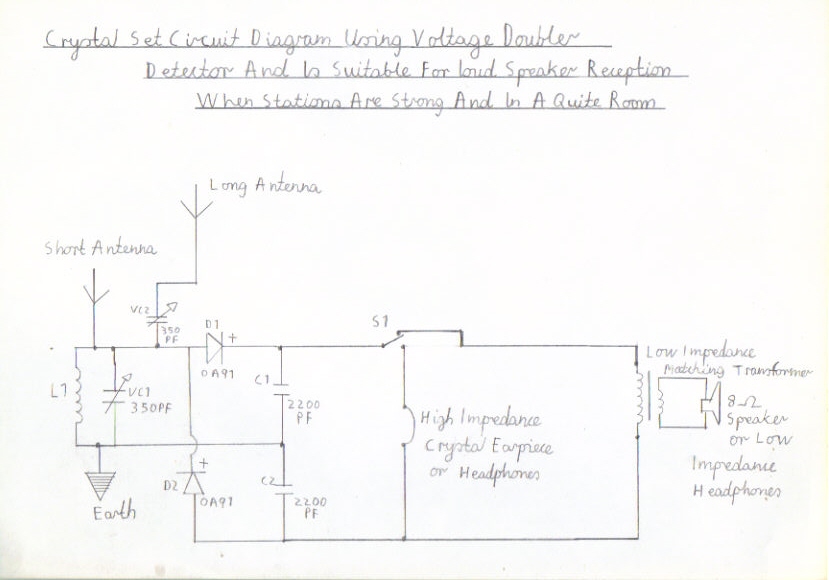 Crystal Set Circuit Diagram Using Voltage Doubler
Detector And Is Suitable For loud Speaker Reception
When Stations Are Strong And In A Quite Room
Long Antenna
Short Antenna
VC2
350
PF
D1
+
OA91
S1
L1
VC1
350PF
C1
2200
PF
High Impedance
Crystal Earpiece
or Headphones
Low Impedance
Matching Transformer
8Ω
Speaker
or Low
Impedance
Headphones
Earth
D2
+
OA91
C2
2200
PF